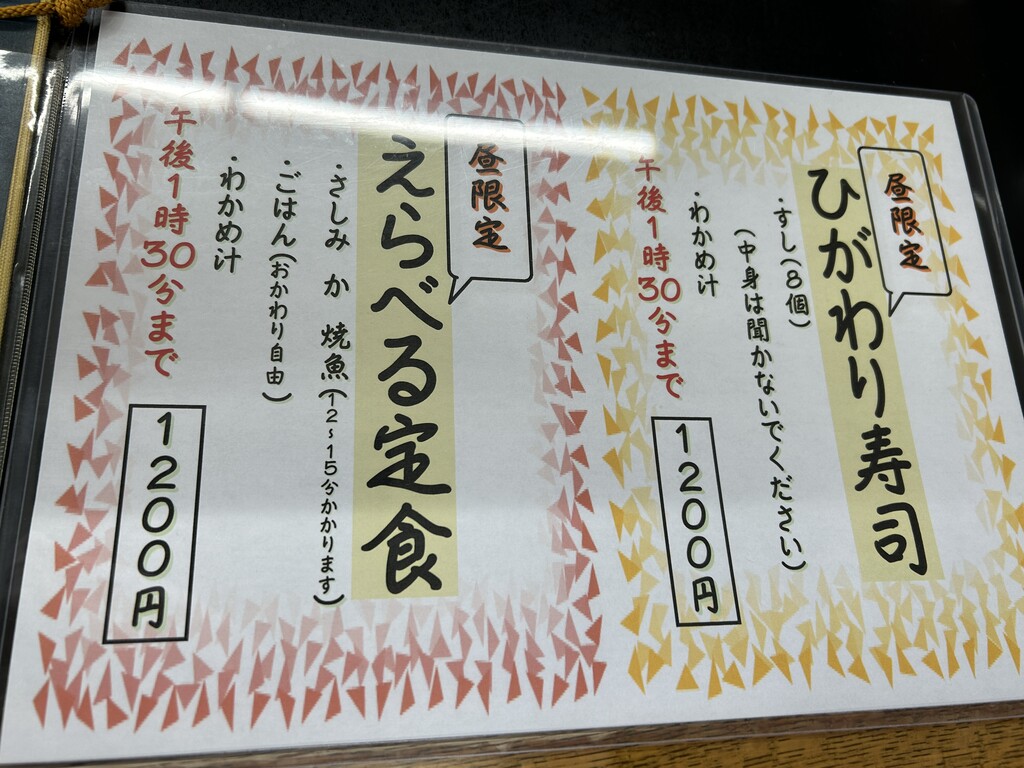 昼限定
ひがわり寿司
・すし(8個)
(中身は聞かないでください)
・わかめ汁
午後1時30分まで
1200円
昼限定
えらべる定食
・さしみ か 焼魚(12~15分かかります)
・ごはん(おかわり自由)
・わかめ汁
午後1時30分まで
1200円